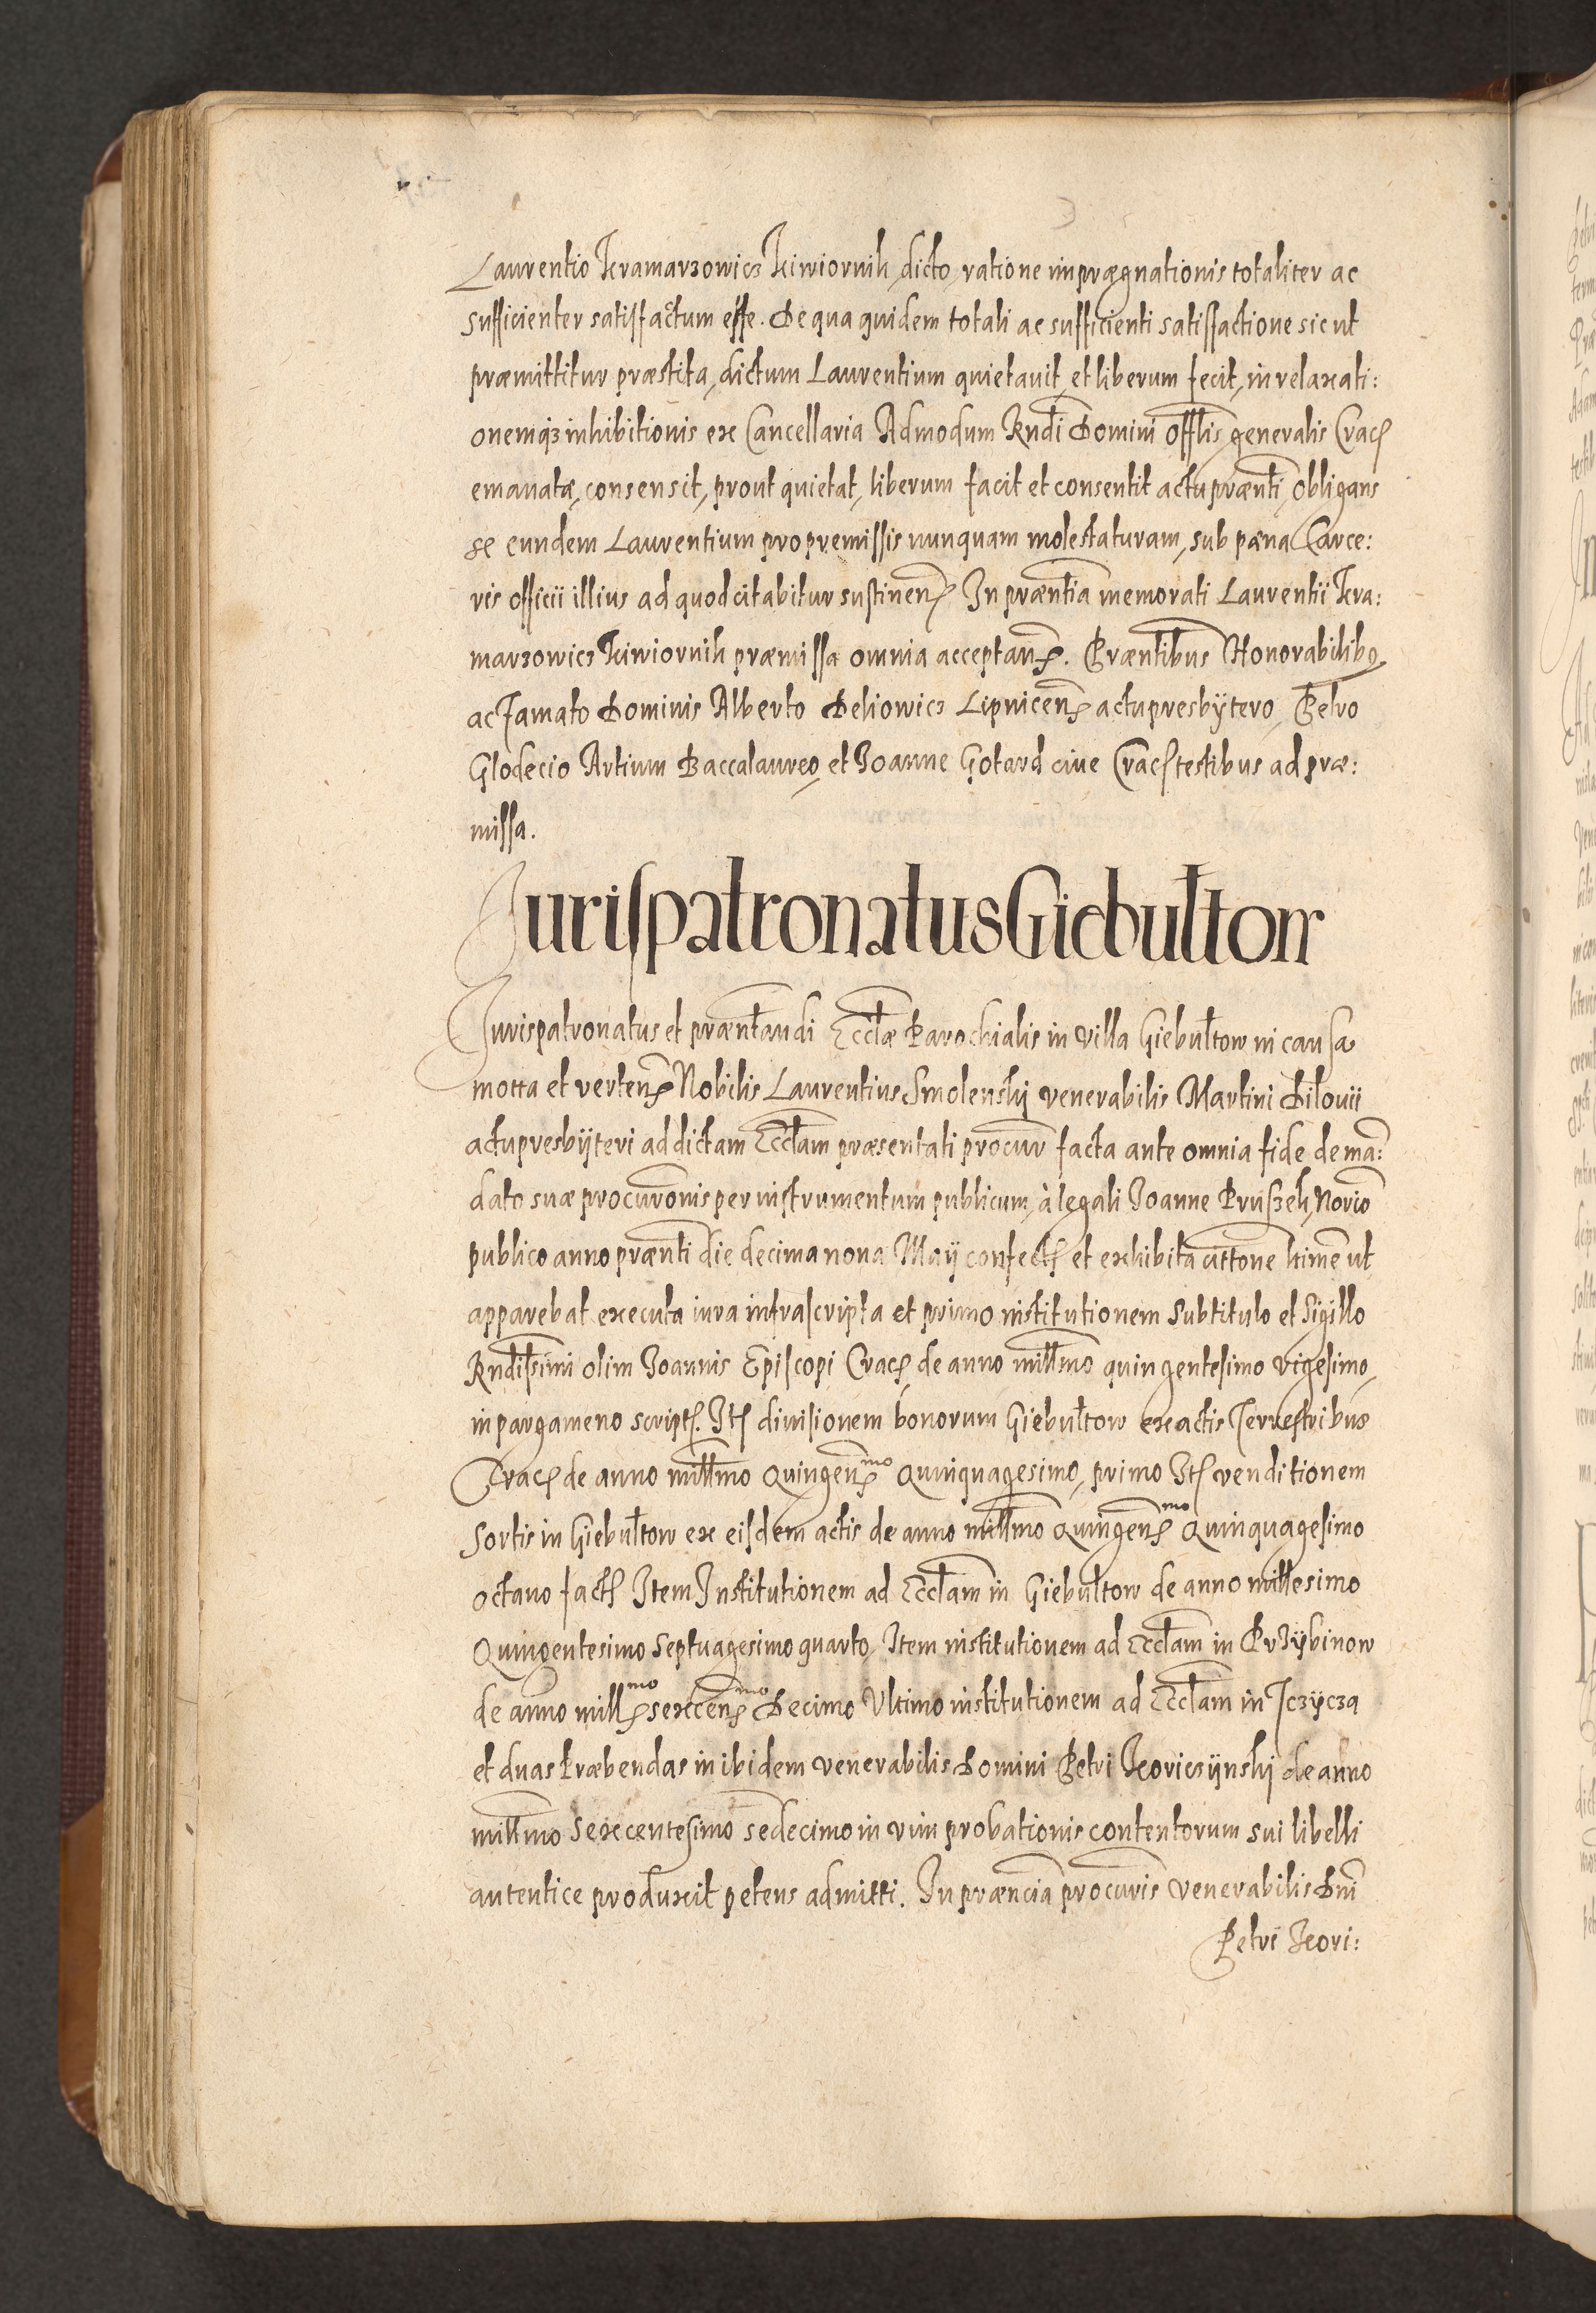 Laurentio Kramarzowicz Kiwiornik dicto, ratione impraegnationis totaliter ac
sufficienter satisfactum esse. De qua quidem totali ac sufficienti satisfactione sic ut
praemittitur praestita, dictum Laurentium quietauit, et liberum fecit, in relaxati:
onemqз inhibitionis ex Cancellaria Admodum Rndi Domini Offlis generalis Crac
emanatae, consensit, prout quietat, liberum facit et consentit actu praenti, Obligans
se eundem Laurentium pro premissis nunquam molestaturam, sub paena Carce:
ris officii illius ad quod citabitur sustinen. In praentia memorati Laurentii Kra:
marzowicz Kiwiornik praemissa omnia acceptan. Praentibus Honorabilibq
ac famato Dominis Alberto Deliowicz Lipnicen actupresbÿtero, Petro
Glodecio Artium Baccalaureo, et Joanne Gotard ciue Crac testibus ad prae:
missa.
Jurispatronatus Giebułtow
Jurispatronatus et praentandi Ecclae Parochialis in Villa Giebułtow in causa
mota et verten Nobilis Laurentius Smolenskj venerabilis Martini Dilouii
actupresbÿteri ad dictam Ecclam praesentati procur facta ante omnia fide de ma:
dato suae procuronis per instrumentum publicum, à legali Joanne Pruszek, Norio
publico anno praenti die decima nona Maÿ confect et exhibita cittone ltime ut
apparebat executa iura infrascripta et primo institutionem sub titulo et Sigillo
Rndissimi olim Joannis Episcopi Crac de anno millmo quingentesimo vigesimo,
in pargameno script. It diuisionem bonorum Giebułtow ex actis Terrestribus
Crac de anno millmo Quingenmo Quinquagesimo, primo It venditionem
Sortis in Giebułtow ex eisdem actis de anno millmo Quingenmo Quinquagesimo
octauo fact Item Institutionem ad Ecclam in Giebułtow de anno millesimo
Quingentesimo Septuagesimo quarto, Item institutionem ad Ecclam in Przÿbinow
de anno millmo sexcenmo Decimo Ultimo institutionem ad Ecclam in Jczÿcza
et duas Praebendas in ibidem venerabilis Domini Petri Koricsÿnskj de anno
millmo Sexcentesimo sedecimo in vim probationis contentorum sui libelli
autentice produxit petens admitti. In praencia procuris venerabilis Dni
Petri Kori: